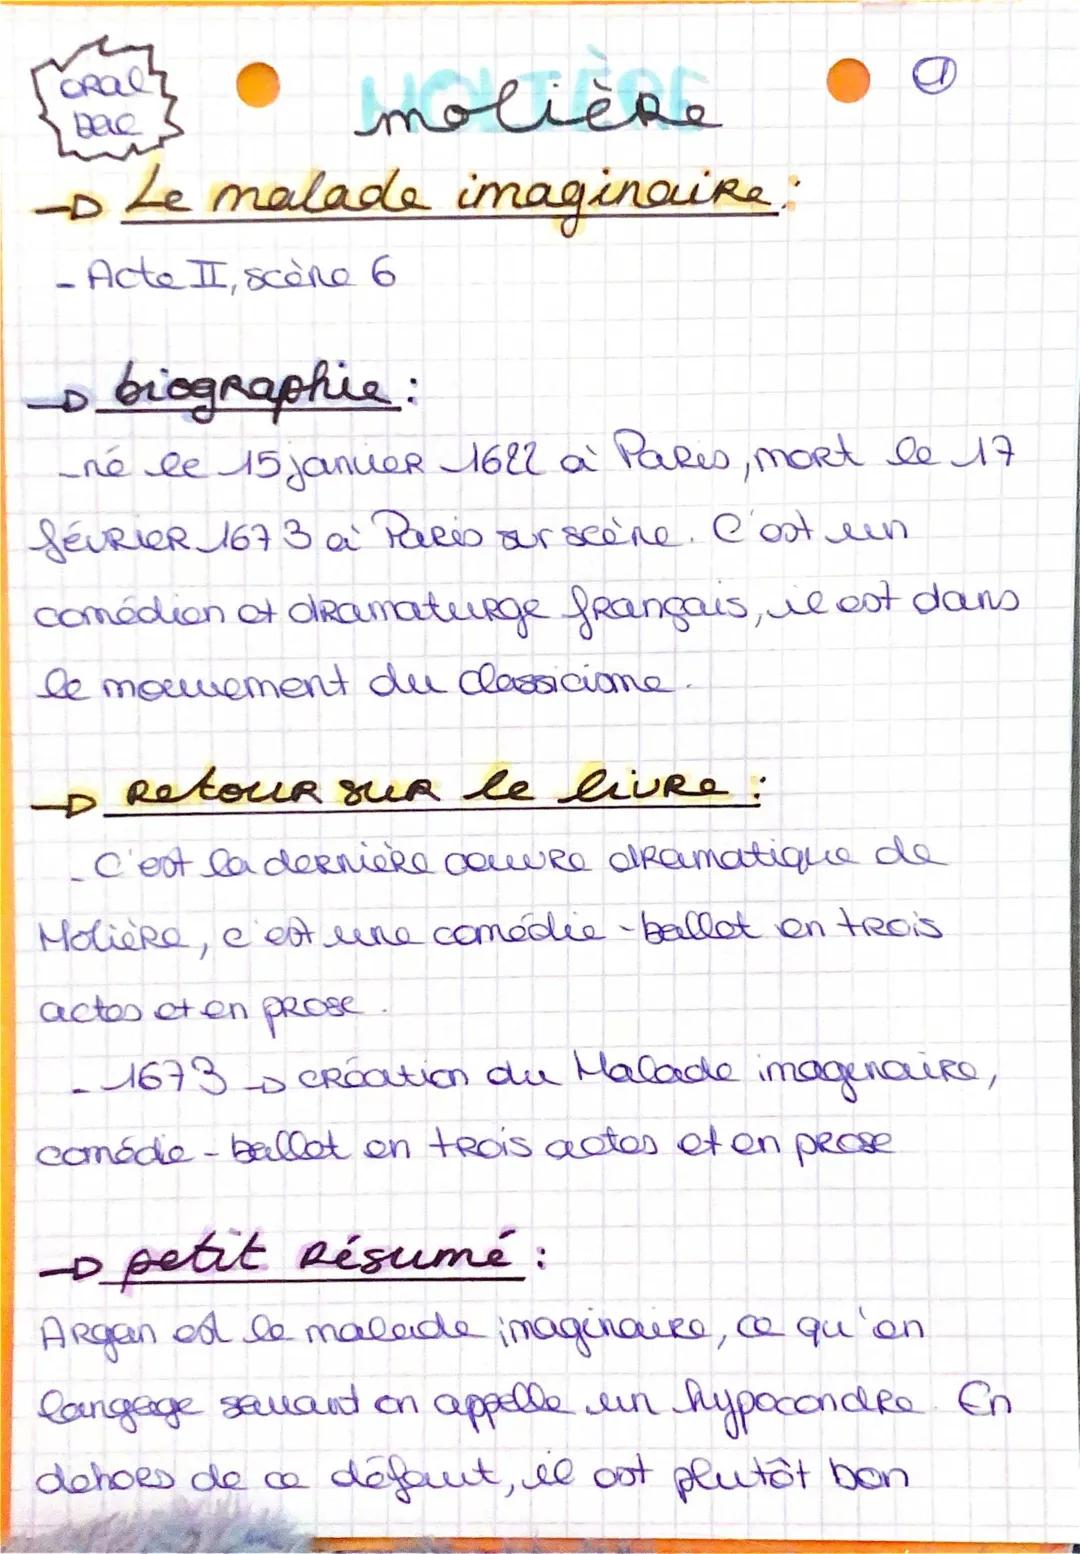 oral
bac
MOLIÈRE
molière
①
→ Le malade imaginaire :
- Acte II, scène 6
→ biographie :
- né le 15 janvier 1622 à Paris, mort le 17
février 1673 à Paris sur scène. C'est un
comédien et dramaturge français, il est dans
le mouvement du classicisme.
→ Retour sur le livre :
- C'est la dernière oeuvre dramatique de
Molière, c'est une comédie-ballet en trois
actes et en prose.
- 1673 → création du Malade imaginaire,
comédie-ballet en trois actes et en prose
→ petit résumé :
Argan est le malade imaginaire, ce qu'en
langage savant on appelle un hypocondre. En
dehors de ce défaut, il est plutôt bon